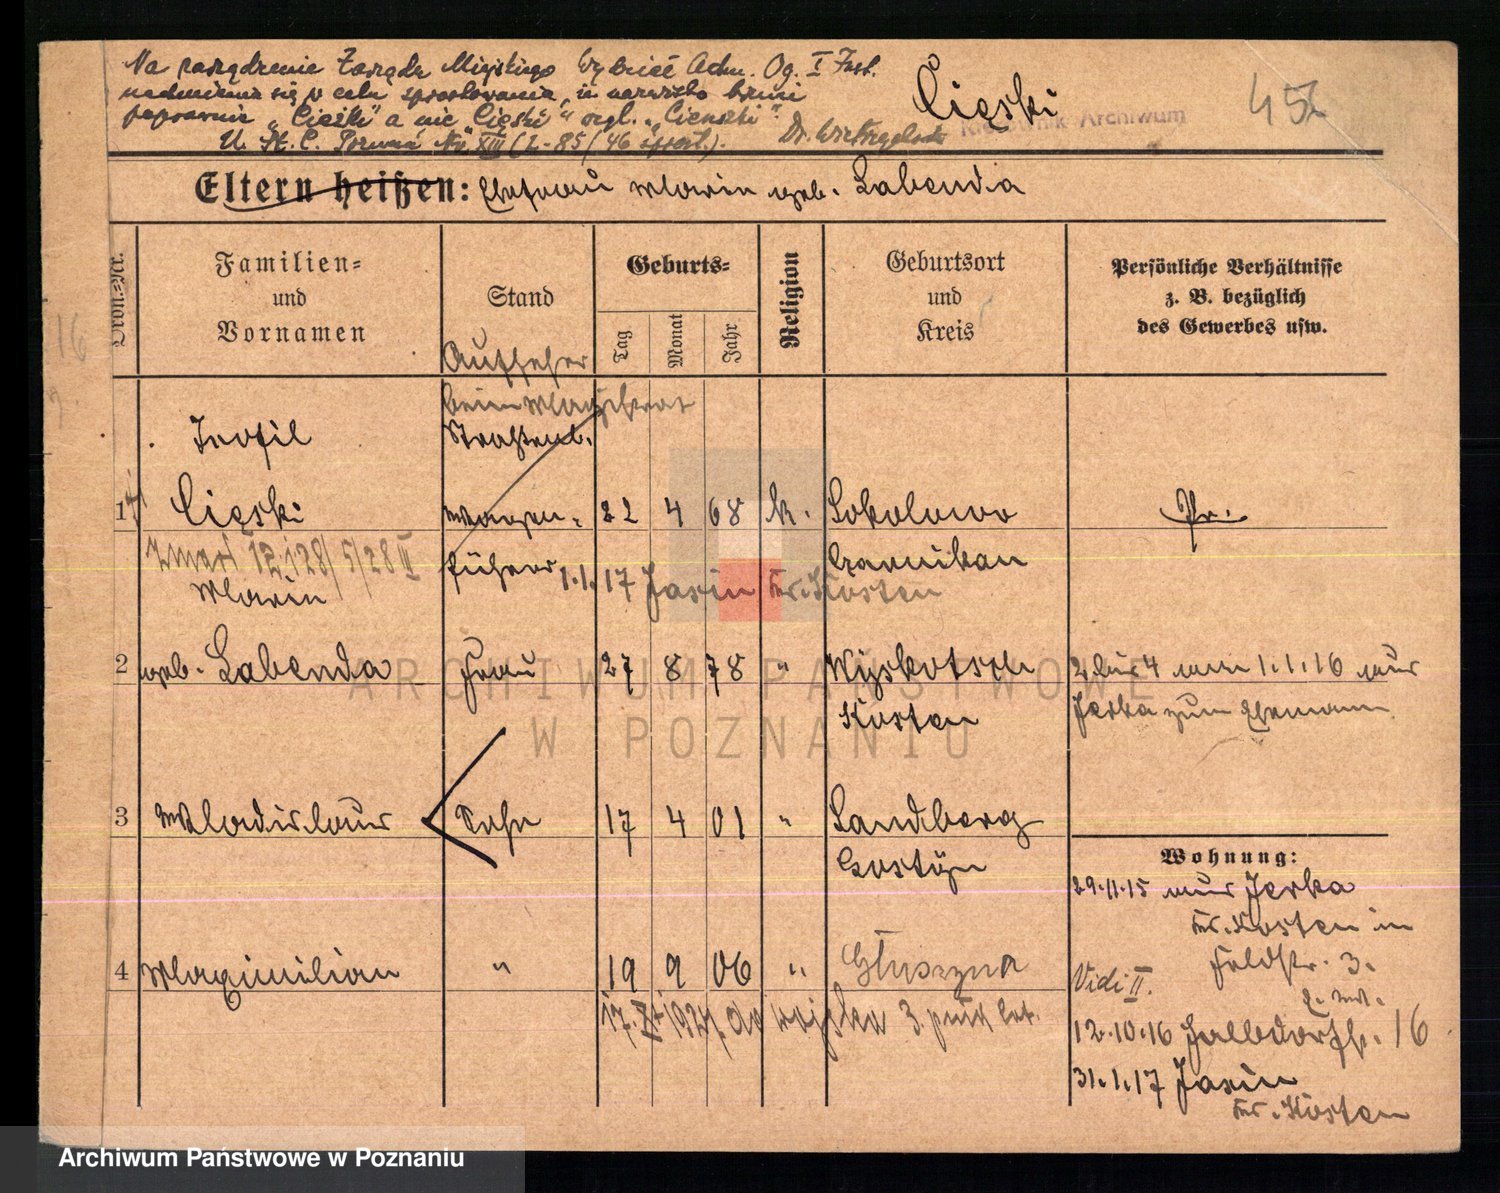 Na zarządzenie Zarządu Miejskiego Wydział Adm. Og. I Inst.
nadmienia się w celu sprostowania, iż nazwisko brzmi
poprawnie „Cieżki" a nie Cięski" wzgl. „Cienski".
U. St. C. Poznań Nr XIII (2-85/46 sprost.).
Cięski
452
Kierownik Archiwum
Eltern heißen: Ehefrau Marie geb. Labenda
Ordn.-Nr.
Familien-
und
Vornamen
Stand
Geburts-
Tag
Monat
Jahr
Religion
Geburtsort
und
Kreis
Persönliche Verhältnisse
z. B. bezüglich
des Gewerbes usw.
Aufseher
beim Magistrat
Teofil
Straßenb.
1 Cięski
Wagen-
22 4 68 k. Sokolowo
Pr.
zmarł 12.1.28/5/28 II
führer
Czarnikau
1.1.17 Jasin Kr. Kosten
Marie
2 geb. Labenda Frau 27 8 78 " Wyskotsch
Kosten
2 bis 4 am 1.1.16 aus
Jerka zum Ehemann
3 Wladislaus Sohn 17 4 01 " Sandberg
Gostyn
4 Maximilian " 19 9 06 " Głuszyna
17. XI 1927. do wojska 3. pułk lot.
Wohnung:
29.11.15 aus Jerka
Kr. Kosten in
Feldstr. 3.
Vidi II.
12.10.16 Halbdorfstr. 16
31.1.17 Jasin
Kr. Kosten
ARCHIWUM PAŃSTWOWE
W POZNANIU
Archiwum Państwowe w Poznaniu